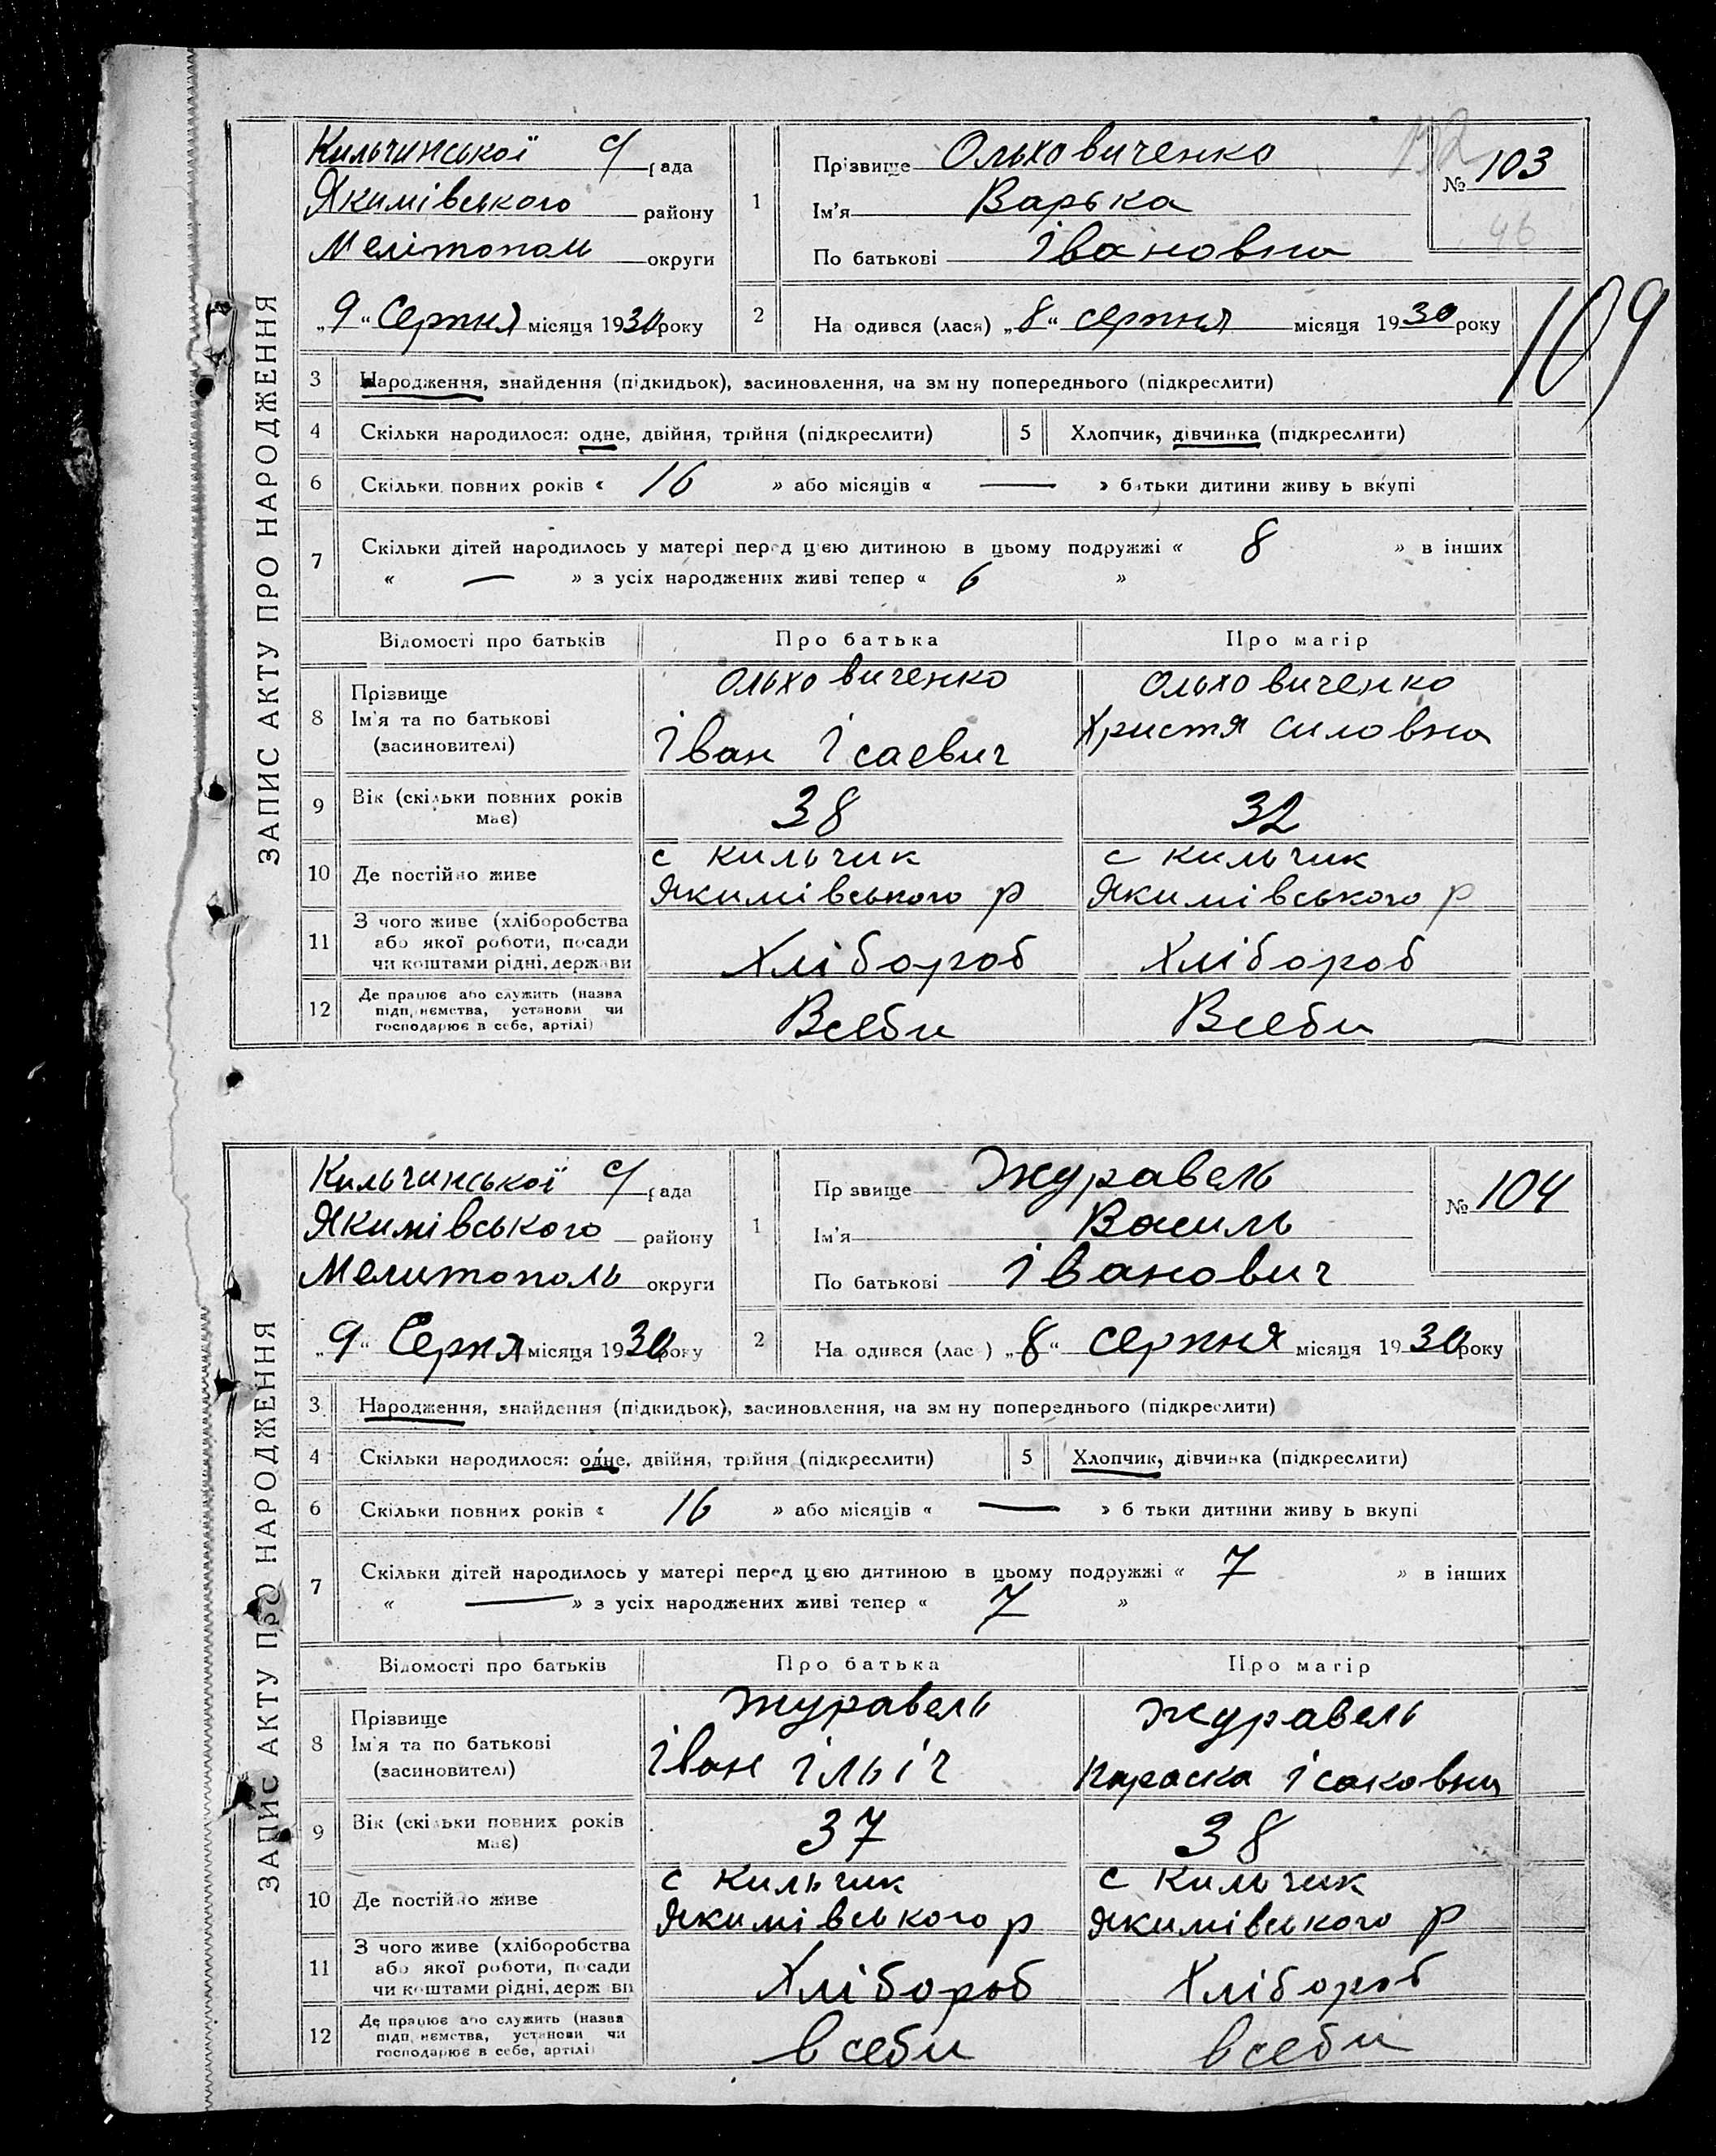 ЗАПИС АКТУ ПРО НАРОДЖЕННЯ
Кильчинської с/рада
Якимівського району
Мелітополь округи
„9“ Серпня місяця 1930 року
1
Прізвище Ольховиченко
Ім'я Варька
По батькові Івановна
№ 103
46
109
2
Народився (лася) „8“ серпня місяця 1930 року
3 Народження, знайдення (підкидьок), засиновлення, на зміну попереднього (підкреслити)
4 Скільки народилося: одне, двійня, трійня (підкреслити) 5 Хлопчик, дівчинка (підкреслити)
6 Скільки повних років « 16 » або місяців « — » батьки дитини живуть вкупі
7 Скільки дітей народилось у матері перед цією дитиною в цьому подружжі « 8 » в інших
« — » з усіх народжених живі тепер « 6 »
Відомості про батьків Про батька Про матір
8 Прізвище
Ім'я та по батькові
(засиновителі)
Ольховиченко
Іван Ісаевич
Ольховиченко
Христя Силовна
9 Вік (скільки повних років
має)
38
32
10 Де постійно живе
с Кильчик
Якимівського р
с Кильчик
Якимівського р
11 З чого живе (хліборобства
або якої роботи, посади
чи коштами рідні, держави
Хлібороб
Хлібороб
12 Де працює або служить (назва
підприємства, установи чи
господарює в себе, артілі)
Всеби
Всеби
ЗАПИС АКТУ ПРО НАРОДЖЕННЯ
Кильчинської с/рада
Якимівського району
Мелитополь округи
„9“ Серпя місяця 1930 року
1
Прізвище Журавель
Ім'я Василь
По батькові Іванович
№ 104
2
Народився (лась) „8“ серпня місяця 1930 року
3 Народження, знайдення (підкидьок), засиновлення, на зміну попереднього (підкреслити)
4 Скільки народилося: одне, двійня, трійня (підкреслити) 5 Хлопчик, дівчинка (підкреслити)
6 Скільки повних років « 16 » або місяців « — » батьки дитини живуть вкупі
7 Скільки дітей народилось у матері перед цією дитиною в цьому подружжі « 7 » в інших
« — » з усіх народжених живі тепер « 7 »
Відомості про батьків Про батька Про матір
8 Прізвище
Ім'я та по батькові
(засиновителі)
Журавель
Іван Ільіч
Журавель
Параска Ісаковна
9 Вік (скільки повних років
має)
37
38
10 Де постійно живе
с Кильчик
Якимівського р
с Кильчик
Якимівського р
11 З чого живе (хліборобства
або якої роботи, посади
чи коштами рідні, держави
Хлібороб
Хлібороб
12 Де працює або служить (назва
підприємства, установи чи
господарює в себе, артілі)
всеби
всеби